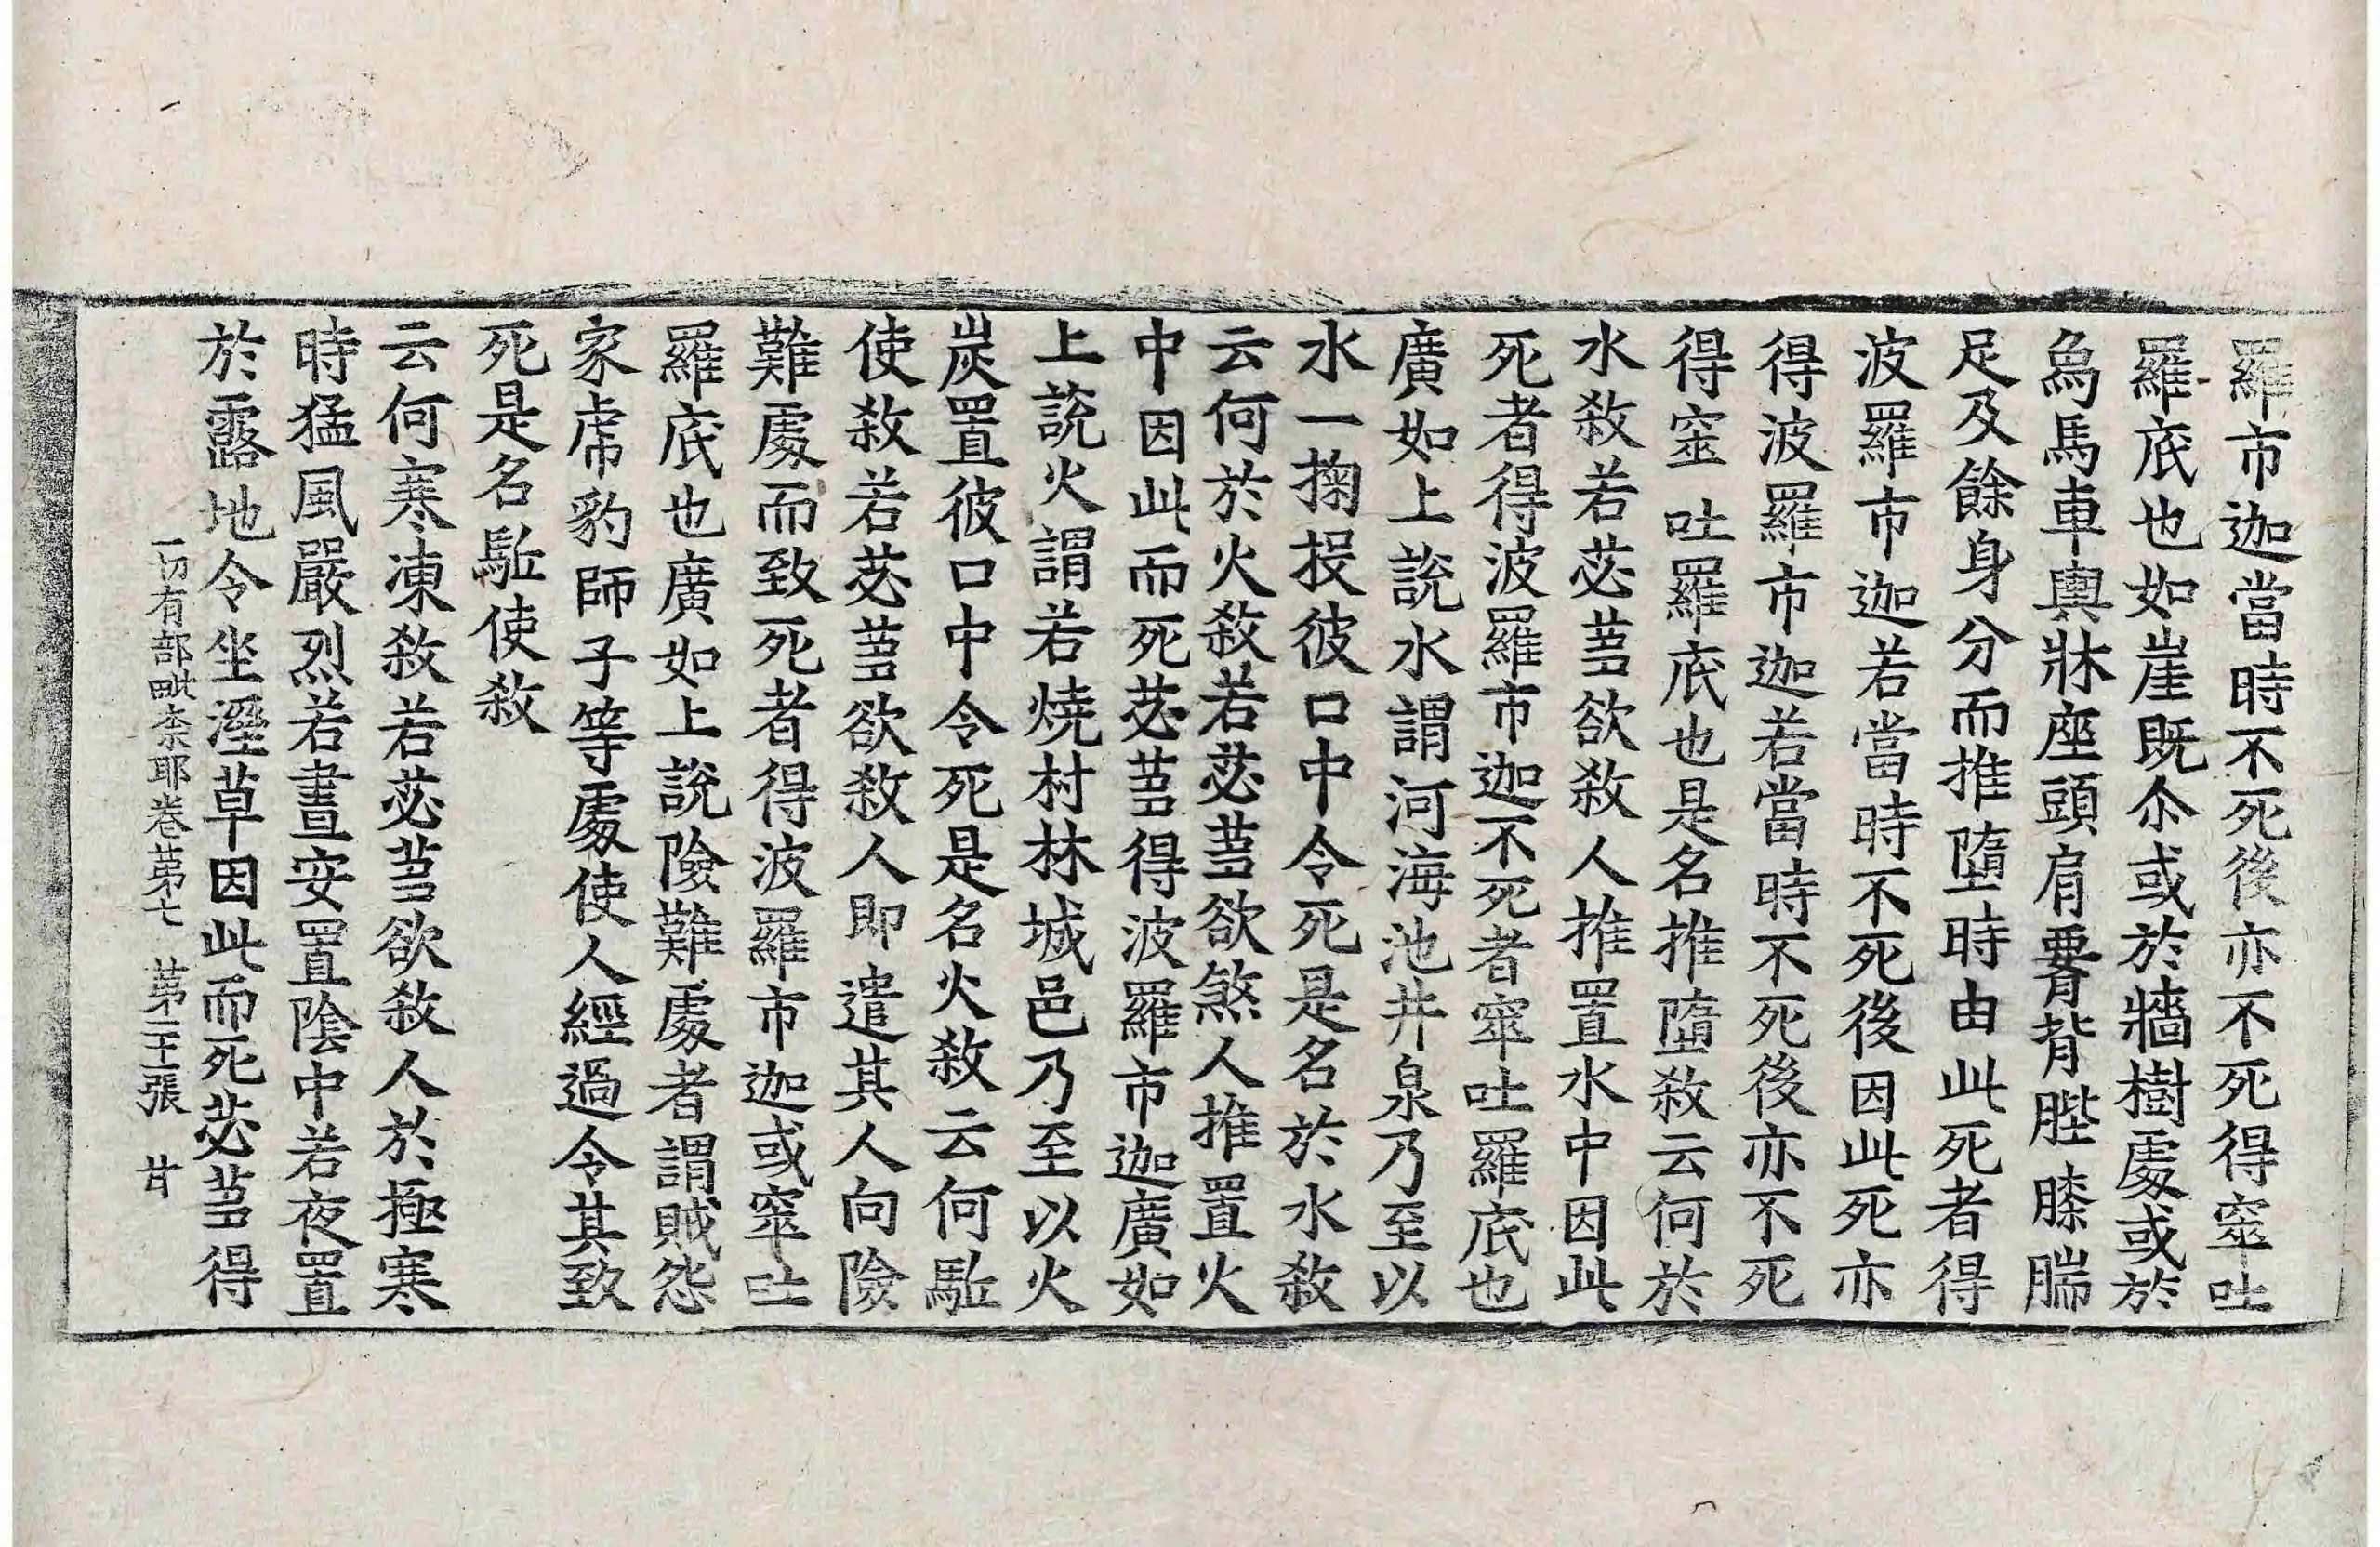 羅市迦當時不死後亦不死得窣吐
羅底也如崖既尒或於牆樹處或於
烏馬車輿牀座頭肩𦝫背䏶膝腨
足及餘身分而推墮時由此死者得
波羅市迦若當時不死後因此死亦
得波羅市迦若當時不死後亦不死
得窒吐羅底也是名推墮敎云何於
水敎若苾蒭欲敎人推置水中因此
死者得波羅市迦不死者窣吐羅底也
廣如上說水謂河海池井泉乃至以
水一掬投彼口中令死是名於水敎
云何於火敎若苾蒭欲煞人推置火
中因此而死苾蒭得波羅市迦廣如
上說火謂若燒村林城邑乃至以火
炭置彼口中令死是名火敎云何駈
使敎若苾蒭欲敎人即遣其人向險
難處而致死者得波羅市迦或窣吐
羅底也廣如上說險難處者謂賊怨
家虎豹師子等處使人經過令其致
死是名駈使敎
云何寒凍敎若苾蒭欲敎人於極寒
時猛風嚴烈若晝安置陰中若夜置
於露地令坐溼草因此而死苾蒭得
一切有部毗柰耶卷苐七 苐二十二張 甘